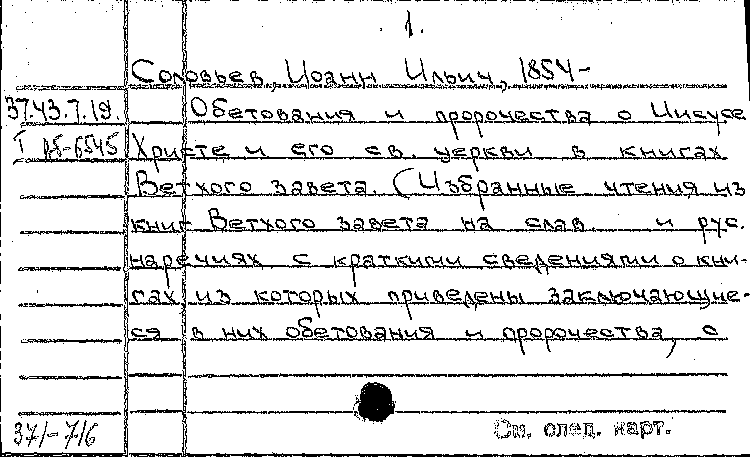 1.
Соловьев, Иоанн Ильич, 1854-
37.43.7.19. Обетования и пророчества о Иисусе
I А5-6545 Христе и его св. церкви в книгах
Ветхого завета. (Избранные чтения из
книг Ветхого завета на слав. и рус.
наречиях с краткими сведениями о кни-
гах из которых приведены заключающие-
ся в них обетования и пророчества, о
371-716 См. след. карт.